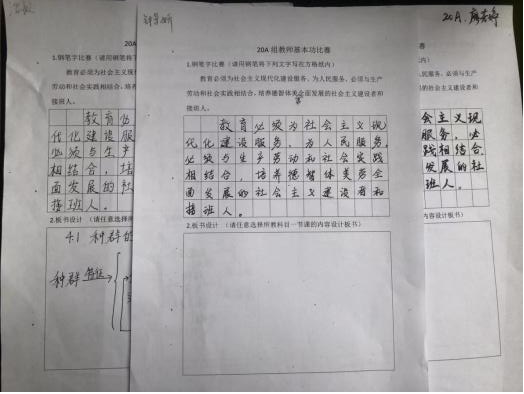 20A
20A 组教师基本功比赛
20A.
赛
1.钢笔字比赛（请用钢笔将
教育必须为社会主义现
劳动和社会实践相结合，培养
接班人。
教育必
代化建设服
必须与生产
相结合，培
面发展的社
接班人。
2.板书设计 （请任意选择所
4.1 种群的
种群 特征
1.钢笔字比赛（请用钢笔将下列文字写在方格纸内）
教育必须为社会主义现代化建设服务、为人民服务，必须与生产
劳动和社会实践相结合，培养德智体美全面发展的社会主义建设者和
接班人。
教育必须为社会主义现
代化建设服务，为人民服务，
必须与生产劳动和社会实践
相结合，培养德智体美劳全
面发展的社会主义建设者和
接班人。
2.板书设计 （请任意选择所教科目一节课的内容设计板书）
内）
人民服务，必须与生产
的社会主义建设者和
会主义现
服务，必
践相结合，
发展的社
班人。
内容设计板书）